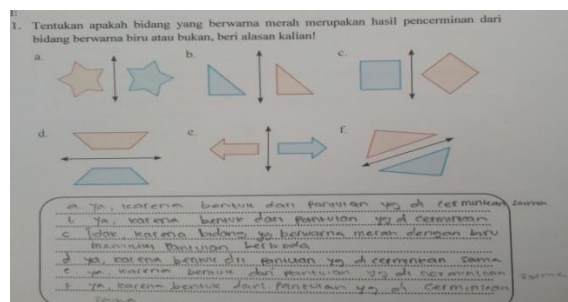 1. Tentukan apakah bidang yang berwarna merah merupakan hasil pencerminan dari
bidang berwarna biru atau bukan, beri alasan kalian!
a. b. c.
d. e. f.
a ya, karena bentuk dan pantulan yg di cerminkan sama
b ya, karena bentuk dan pantulan yg di cerminkan
c Tidak, karena bidang yg berwarna merah dengan biru
memiliki pantulan berbeda
d ya, karena bentuk dri pantulan yg di cerminkan sama
e. ya, karena bentuk dari pantulan yg di cerminkan sama
f ya, karena bentuk dari pantulan yg di cerminkan
sama